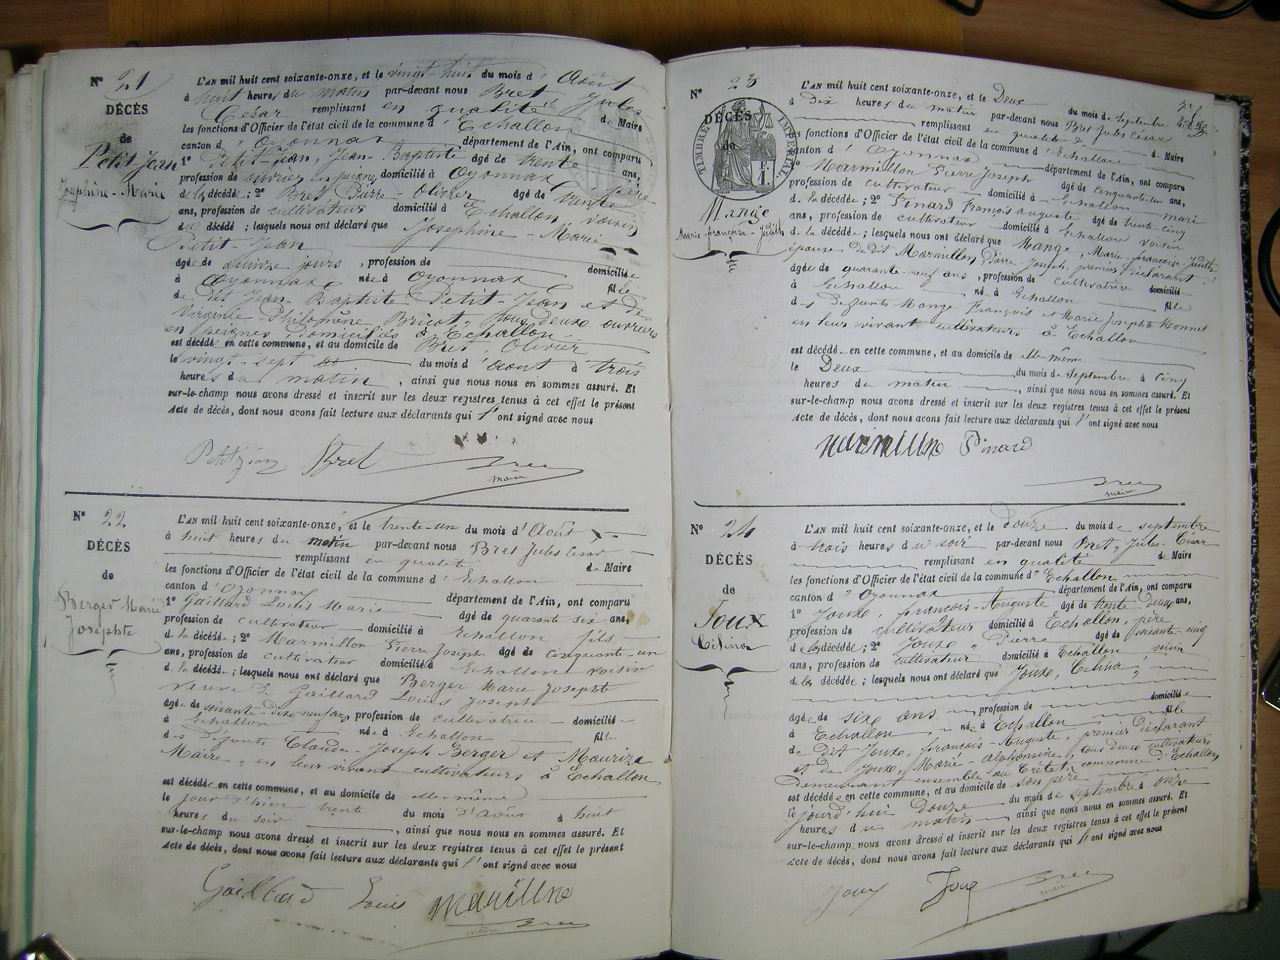 N° 21
DÉCÈS
de
Petit Jean
Joséphine-Marie
L'AN mil huit cent soixante-onze, et le vingt-huit du mois d'Août
à huit heures du matin par-devant nous Bret Jules
César remplissant en qualité de Maire
les fonctions d'Officier de l'état civil de la commune d'Echallon
canton d'Oyonnax département de l'Ain, ont comparu
1° Petit Jean, Jean-Baptiste âgé de trente ans,
profession de ouvrier en peignes domicilié à Oyonnax père
de la décédée ; 2° Bret Pierre-Olivier âgé de trente
ans, profession de cultivateur domicilié à Echallon voisin
de la décédé ; lesquels nous ont déclaré que Joséphine-Marie
Petit Jean
âgée de jours , profession de domiciliée
à Oyonnax née à Oyonnax fille
de dit Jean Baptiste Petit-Jean et de
Virginie Philomène Bricot, tous deux ouvriers
en peignes domiciliés à Echallon
est décédé en cette commune, et au domicile de Bret, Olivier
le vingt-sept du mois d'août à trois
heures du matin , ainsi que nous nous en sommes assuré. Et
sur-le-champ nous avons dressé et inscrit sur les deux registres tenus à cet effet le présent
Acte de décès, dont nous avons fait lecture aux déclarants qui l'ont signé avec nous
Petitjean Bret Bret
maire
N° 22
DÉCÈS
de
Berger Marie
Josephte
L'AN mil huit cent soixante-onze, et le trente-un du mois d'Août
à huit heures du matin par-devant nous Bret Jules César
remplissant en qualité de Maire
les fonctions d'Officier de l'état civil de la commune d'Echallon
canton d'Oyonnax département de l'Ain, ont comparu
1° Gaillard Louis Marie âgé de quarante six ans,
profession de cultivateur domicilié à Echallon fils
de la décédée ; 2° Marmillon Pierre Joseph âgé de cinquante-un
ans, profession de cultivateur domicilié à Echallon voisin
de la décédée ; lesquels nous ont déclaré que Berger Marie Josephte
veuve de Gaillard Louis Joseph
âgée de soixante-dix-neuf ans profession de cultivatrice domiciliée
à Echallon née à Echallon fille
des défunts Claude-Joseph Berger et Mauriza
Marie, en leur vivant cultivateurs à Echallon
est décédée en cette commune, et au domicile de elle même
le jour d'hier trente du mois d'août à huit
heures du soir , ainsi que nous nous en sommes assuré. Et
sur-le-champ nous avons dressé et inscrit sur les deux registres tenus à cet effet le présent
Acte de décès, dont nous avons fait lecture aux déclarants qui l'ont signé avec nous
Gaillard Louis marillone
Bret
maire
N° 23
DÉCÈS
de
TIMBRE IMPÉRIAL
Mange
Marie-françoise-Judith
L'AN mil huit cent soixante-onze, et le Deux du mois de Septembre
à Dix heures du matin par-devant nous Bret Jules César
remplissant en qualité de Maire
les fonctions d'Officier de l'état civil de la commune d'Echallon
canton d'Oyonnax département de l'Ain, ont comparu
1° Marmillon Pierre Joseph âgé de cinquante-un ans,
profession de cultivateur domicilié à Echallon mari
de la décédée ; 2° Pinard françois auguste âgé de trente cinq
ans, profession de cultivateur domicilié à Echallon voisin
de la décédée ; lesquels nous ont déclaré que Mange, Marie-françoise-Judith
épouse de dit Marmillon Pierre Joseph, premier déclarant
âgée de quarante-neuf ans , profession de cultivatrice domiciliée
à Echallon née à Echallon fille
des défunts Mange François et Marie Josephte Monnet
en leur vivant cultivateurs à Echallon
est décédée en cette commune, et au domicile de elle même
le Deux du mois de septembre à cinq
heures du matin , ainsi que nous nous en sommes assuré. Et
sur-le-champ nous avons dressé et inscrit sur les deux registres tenus à cet effet le présent
Acte de décès, dont nous avons fait lecture aux déclarants qui l'ont signé avec nous
marmillone Pinard
Bret
maire
N° 24
DÉCÈS
de
Joux
L'AN mil huit cent soixante-onze, et le douze du mois de septembre
à trois heures du soir par-devant nous Bret, Jules-César
remplissant en qualité de Maire
les fonctions d'Officier de l'état civil de la commune d'Echallon
canton d'Oyonnax département de l'Ain, ont comparu
1° Joux, françois-Auguste âgé de trente deux ans,
profession de cultivateur domicilié à Echallon, père
de la décédée ; 2° Joux Pierre âgé de soixante-cinq
ans, profession de cultivateur domicilié à Echallon
de la décédée ; lesquels nous ont déclaré que Joux,
âgée de six ans profession de domiciliée
à Echallon, née à Echallon fille
de dit Joux, françois-Auguste, premier déclarant
et de Joux, Marie-alphonsine, tous deux cultivateurs
demeurant ensemble au Crétet, commune d'Echallon
est décédée en cette commune, et au domicile de son père
le jourd'hui Douze du mois de septembre à onze
heures du matin , ainsi que nous nous en sommes assuré. Et
sur-le-champ nous avons dressé et inscrit sur les deux registres tenus à cet effet le présent
Acte de décès, dont nous avons fait lecture aux déclarants qui l'ont signé avec nous
Joux Joux Bret
maire